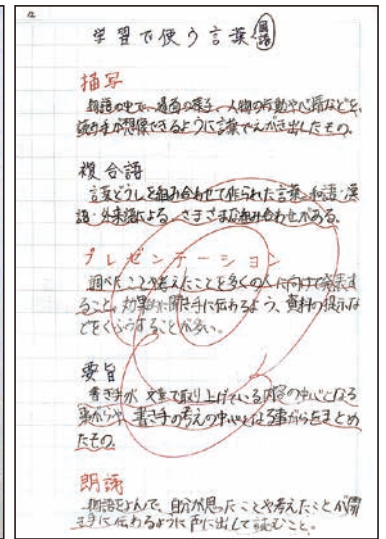 学習で使う言葉 国語
描写
物語の中で、場面の様子、人物の行動や心情などを、
読み手が想像できるように言葉でえがき出したもの。
複合語
言葉どうしを組み合わせて作られた言葉。和語・漢
語・外来語による、さまざまな組み合わせがある。
プレゼンテーション
調べたことや考えたことを多くの人に向けて発表す
ること。効果的に聞き手に伝わるよう、資料の提示な
どをくふうすることが多い。
要旨
書き手が文章で取り上げている内容の中心となる
事がらや、書き手の考えの中心となる事がらをまとめ
たもの。
朗読
物語をよんで、自分が思ったことや考えたことが聞
き手に伝わるように声に出して読むこと。